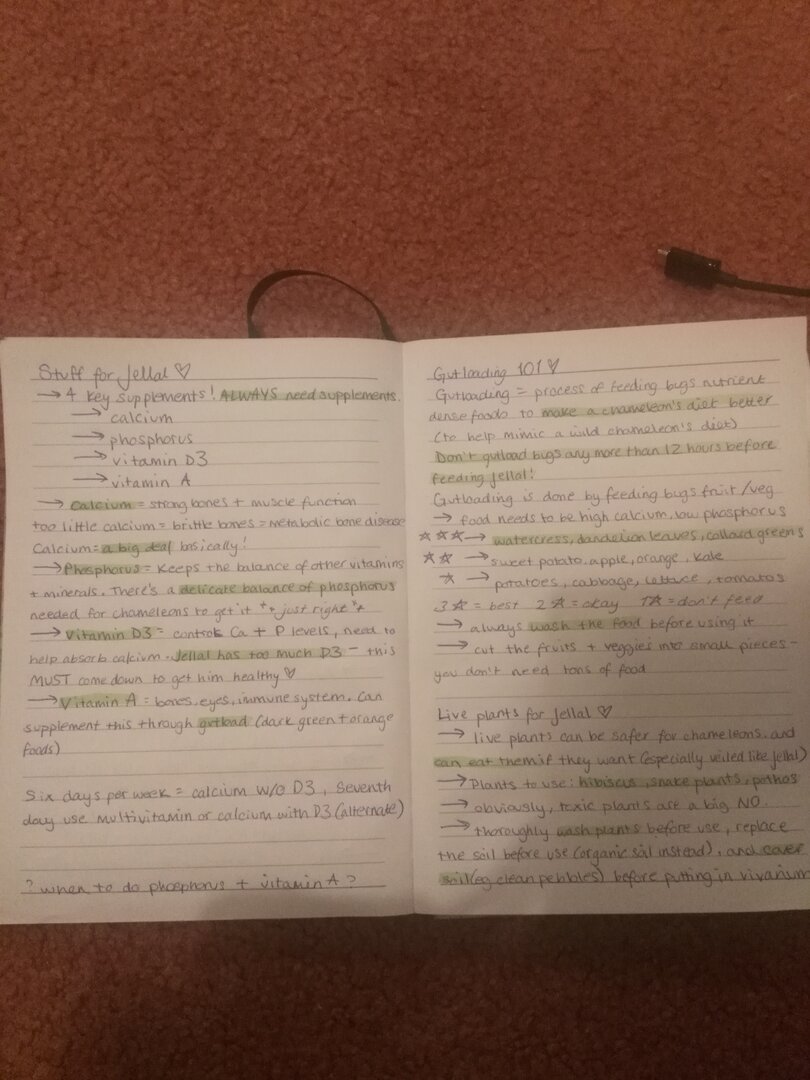 Stuff for Jellal ♡
→ 4 key supplements! ALWAYS need supplements.
→ calcium
→ phosphorus
→ vitamin D3
→ vitamin A
→ Calcium = strong bones + muscle function
too little calcium = brittle bones = metabolic bone disease
Calcium = a big deal basically!
→ Phosphorus = keeps the balance of other vitamins
+ minerals. There's a delicate balance of phosphorus
needed for chameleons to get it ** just right **
→ Vitamin D3 = controls Ca + P levels, need to
help absorb calcium. Jellal has too much D3 - this
MUST come down to get him healthy ♡
→ Vitamin A = bones, eyes, immune system. Can
supplement this through gutload (dark green + orange
foods)
Six days per week = calcium w/o D3, seventh
day use multivitamin or calcium with D3 (alternate)
? when to do phosphorus + vitamin A ?
Gutloading 101 ♡
Gutloading = process of feeding bugs nutrient
dense foods to make a chameleon's diet better
(to help mimic a wild chameleon's diet)
Don't gutload bugs any more than 12 hours before
feeding Jellal!
Gutloading is done by feeding bugs fruit/veg
→ food needs to be high calcium, low phosphorus
☆☆☆→ watercress, dandelion leaves, collard greens
☆☆ → sweet potato, apple, orange, kale
☆ → potatoes, cabbage, lettuce, tomatos
3☆ = best 2☆ = okay 1☆ = don't feed
→ always wash the food before using it
→ cut the fruits + veggies into small pieces -
you don't need tons of food
Live plants for Jellal ♡
→ live plants can be safer for chameleons. and
can eat them if they want (especially veiled like Jellal)
→ Plants to use: hibiscus, snake plants, pothos
→ obviously, toxic plants are a big NO.
→ thoroughly wash plants before use, replace
the soil before use (organic soil instead), and cover
soil (eg clean pebbles) before putting in vivarium